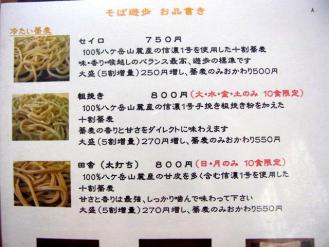 そば遊歩 お品書き
冷たい蕎麦
セイロ 750円
100%八ケ岳山麓産の信濃1号を使用した十割蕎麦
味・香り・喉越しのバランス最高、遊歩の標準です
大盛(5割増量)250円増し、蕎麦のみおかわり500円
粗挽き 800円(火・水・金・土のみ 10食限定)
100%八ケ岳山麓産の信濃1号手挽き粗挽き粉を加えた
十割蕎麦
蕎麦の香りと甘さをダイレクトに味わえます
大盛(5割増量)270円増し、蕎麦のみおかわり550円
田舎(太打ち) 800円(日・月のみ 10食限定)
100%八ケ岳山麓産の甘皮を多く含む信濃1号を使用した
十割蕎麦
甘さと香りは最強、しっかり噛んで味わって下さい
大盛(5割増量)270円増し、蕎麦のみおかわり550円